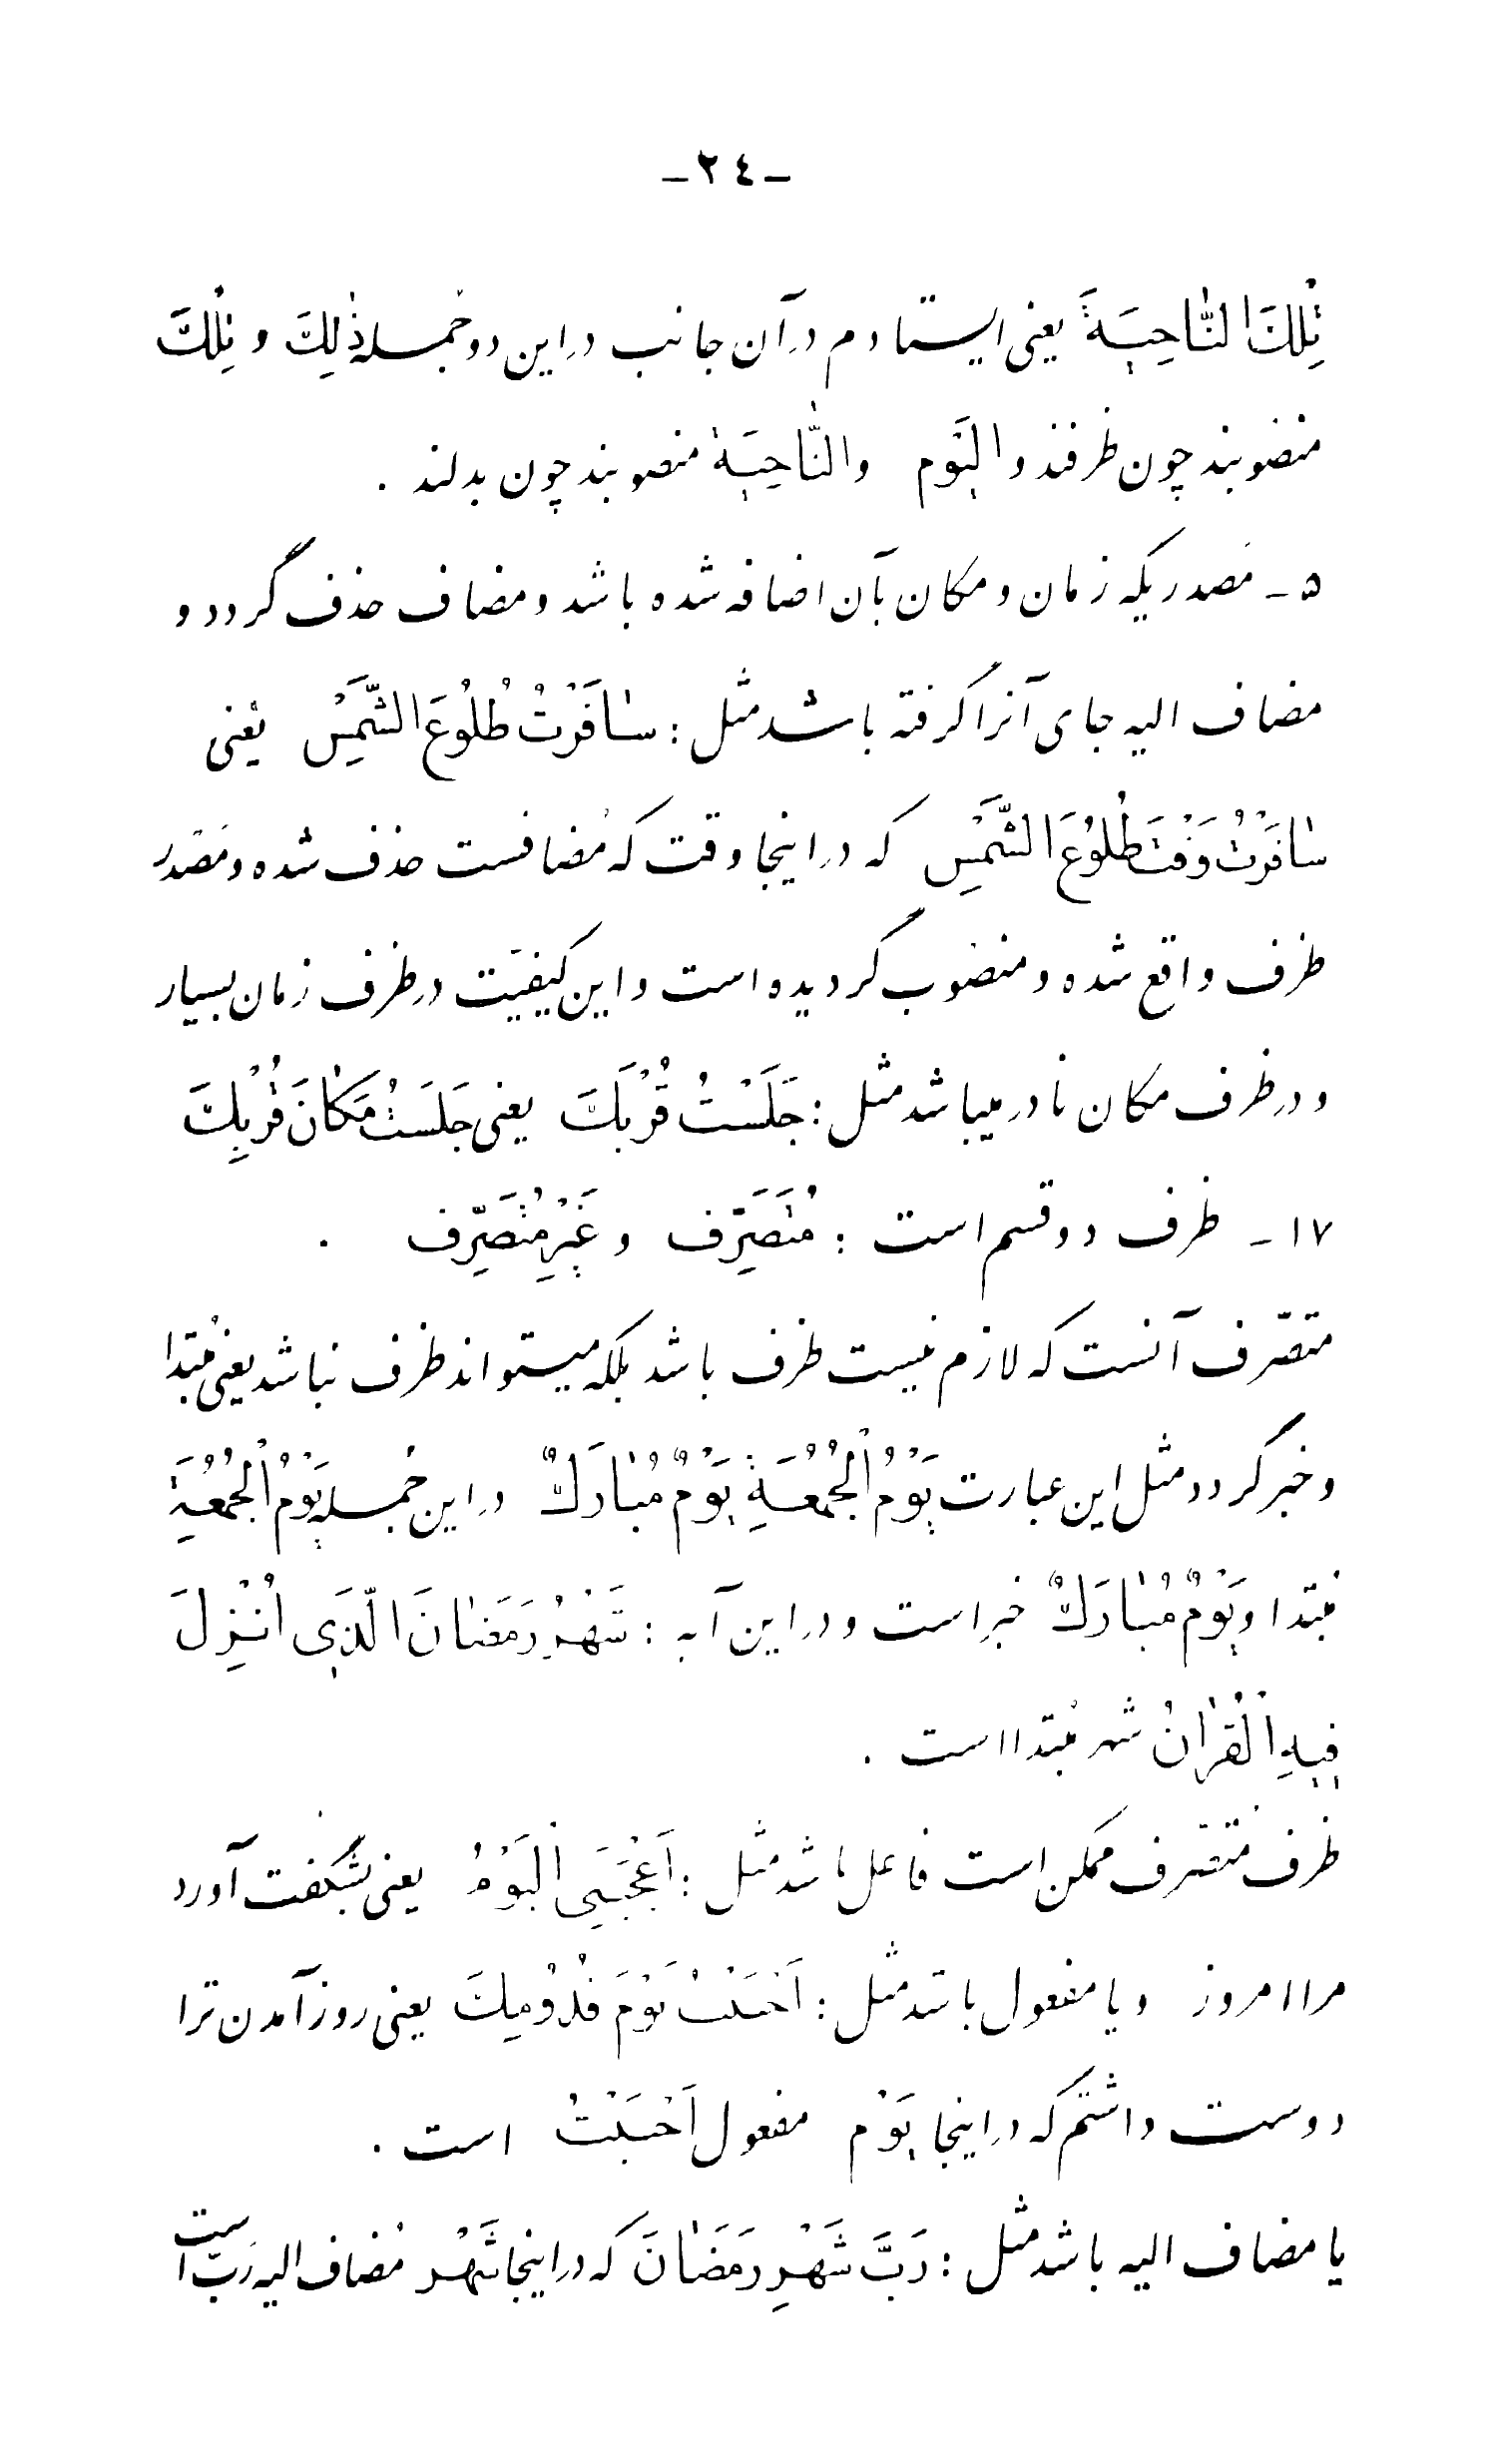 -٢٤-
تِلْكَ النّٰاحِيَةَ یعنی ایستادم در آن جانب در این دو جمله ذٰلِكَ و تِلْكَ
منصوبند چون ظرفند و الیَوْم والنّٰاحِيَة منصوبند چون بدلند .
۵ - مَصدریکه زمان و مکان بآن اضافه شده باشد و مضاف حذف گردد و
مضاف الیه جای آنرا گرفته باشد مثل : سٰافَرْتُ طُلُوعَ الشَّمْسِ یعنی
سٰافَرْتُ وَقْتَ طُلُوعَ الشَّمْسِ که در اینجا وقت که مُضافست حذف شده و مَصْدر
ظرف واقع شده و منصوب گردیده است و این کیفیّت در ظرف زمان بسیار
و در ظرف مکان نادر میباشد مثل : جَلَسْتُ قُرْبَكَ یعنی جَلَسْتُ مَكٰانَ قُرْبِكَ
١٧ - ظرف دو قسم است : مُتَصَرِّف و غَيْرِ مُتَصَرِّف .
متصّرف آنست که لازم نیست ظرف باشد بلکه میستواند ظرف نباشد یعنی مُبتدا
و خبر گردد مثل این عبارت يَوْمُ الْجُمُعَةِ يَوْمٌ مُبٰارَكٌ در این جُمله يَوْمُ الْجُمُعَةِ
مُبتدا و يَوْمٌ مُبٰارَكٌ خبر است و در این آیه : شَهْرُ رَمَضٰانَ الَّذي اُنْزِلَ
فيهِ الْقُرْاٰنُ شهر مُبتدا است .
ظرف متصّرف ممکن است فاعل باشد مثل : اَعْجَبَنِي الْيَوْمُ یعنی بشگفت آورد
مرا امروز و یا مفعول باشد مثل : اَحْبَبْتُ يَوْمَ قُدُوْمِكَ یعنی روز آمدن ترا
دوست داشتم که در اینجا يَوْم مفعول اَحْبَبْتُ است .
یا مضاف الیه باشد مثل : رَبَّ شَهْرِ رَمَضٰانَ که در اینجا شَهْر مُضاف الیه رَبّ است